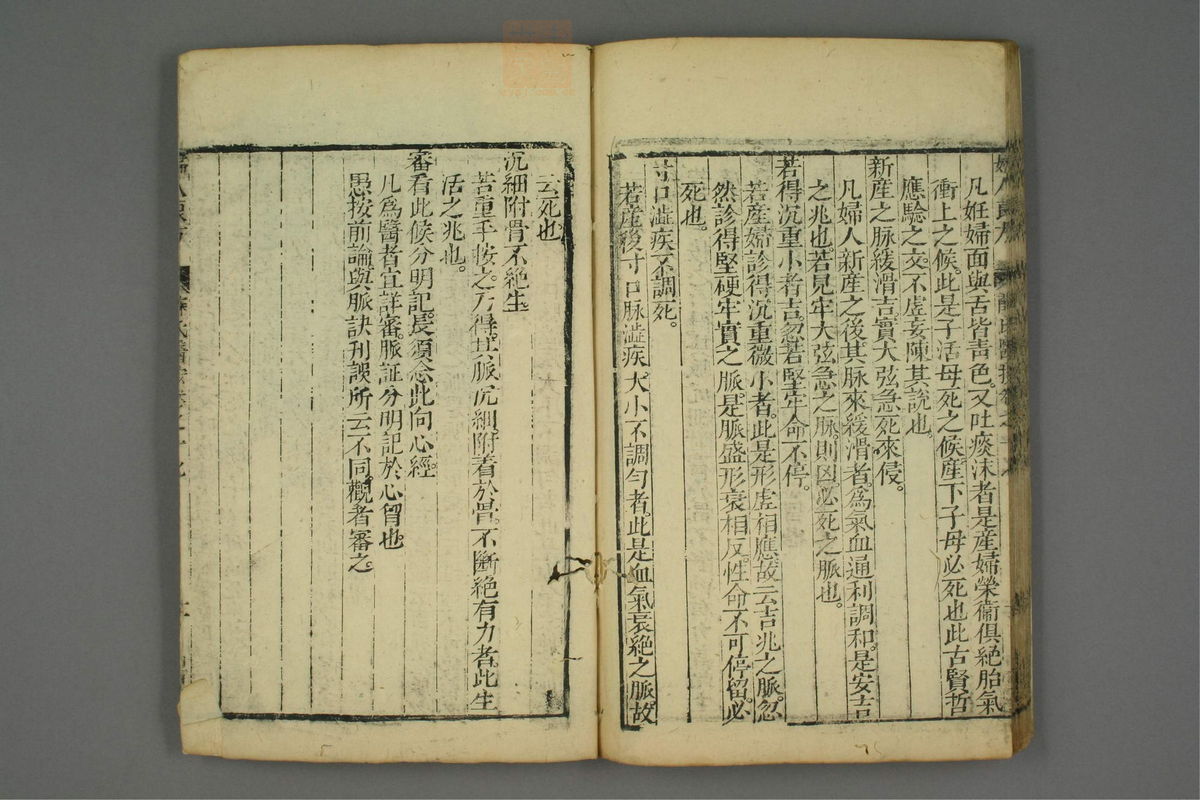 凡妊婦面與舌皆青色又吐痰沫者是産婦榮衞俱絕胎氣
衝上之候此是子活母死之候産下子母必死也此古賢哲
應驗之文不虛妄陳其說也
新産之脉緩滑吉實大弦急死來侵
凡婦人新産之後其脉來緩滑者為氣血通利調和是安吉
之兆也若見牢大弦急之脉則凶必死之脉也
若得沉重小者吉忽若堅牢命不停
若産婦診得沉重微小者此是形虛相應故云吉兆之脉忽
然診得堅硬牢實之脉是脉盛形衰相反性命不可停留必
死也
寸口澁疾不調死
若産後寸口脉澁疾大小不調勻者此是血氣衰絕之脉故
云死也
沉細附骨不絕生
若重手按之乃得其脉沉細附着於骨不斷絕有力者此生
活之兆也
審看此候分明記長須念此向心經
凡為醫者宜詳審脉証分明記於心留也
愚按前論與脉訣刊誤所云不同觀者審之